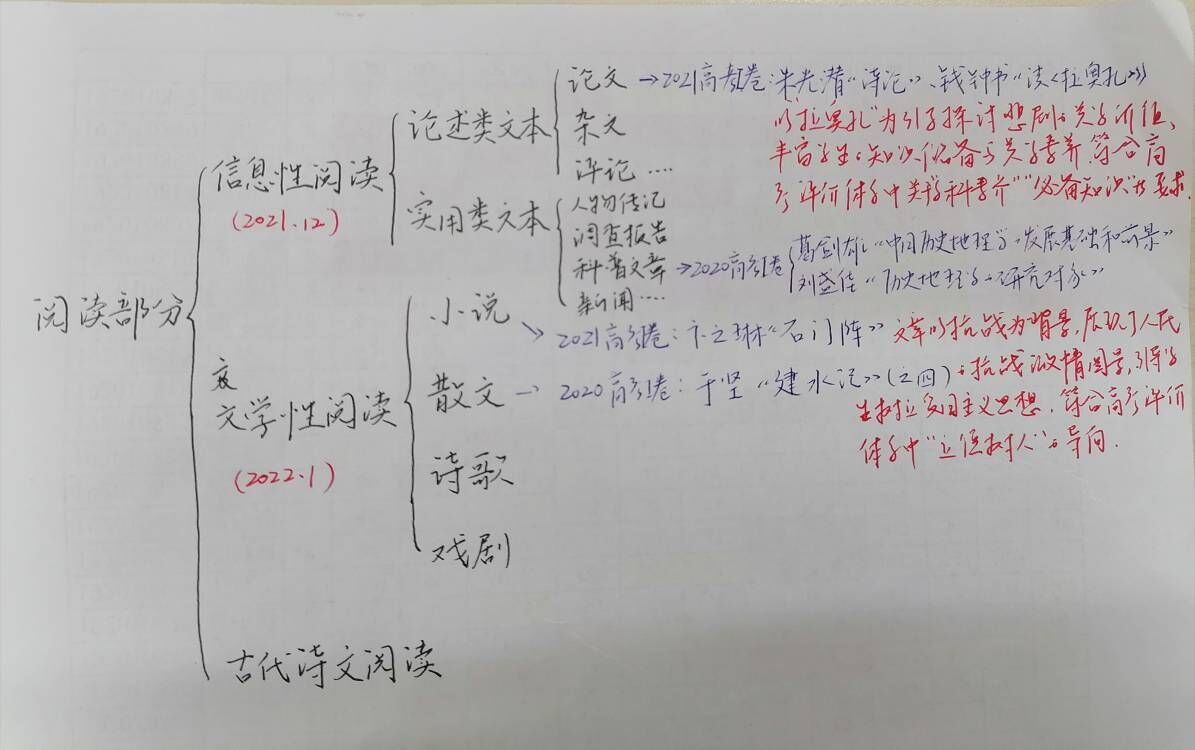 阅读部分
信息性阅读
(2021.12)
论述类文本
论文 →2021高考I卷:朱光潜“诗论”、钱钟书“读《拉奥孔》”
以“拉奥孔”为引子探讨悲剧的美学价值、
丰富学生的知识储备与美学素养,符合高
考评价体系中关于“学科素养”“必备知识”的要求.
杂文
评论 ....
实用类文本
人物传记
调查报告
科普文章 →2020高考I卷
葛剑雄“中国历史地理学的发展基础和前景”
刘盛佳“历史地理学的研究对象”
新闻 ....
文学性阅读
(2022.1)
小说
→ 2021高考I卷:卞之琳“石门阵” 文章以抗战为背景,展现了人民
散文 → 2020高考I卷:于坚“建水记”(之四) 的抗战激情图景,引导学
生树立爱国主义思想,符合高考评价
体系中“立德树人”的导向.
诗歌
戏剧
古代诗文阅读